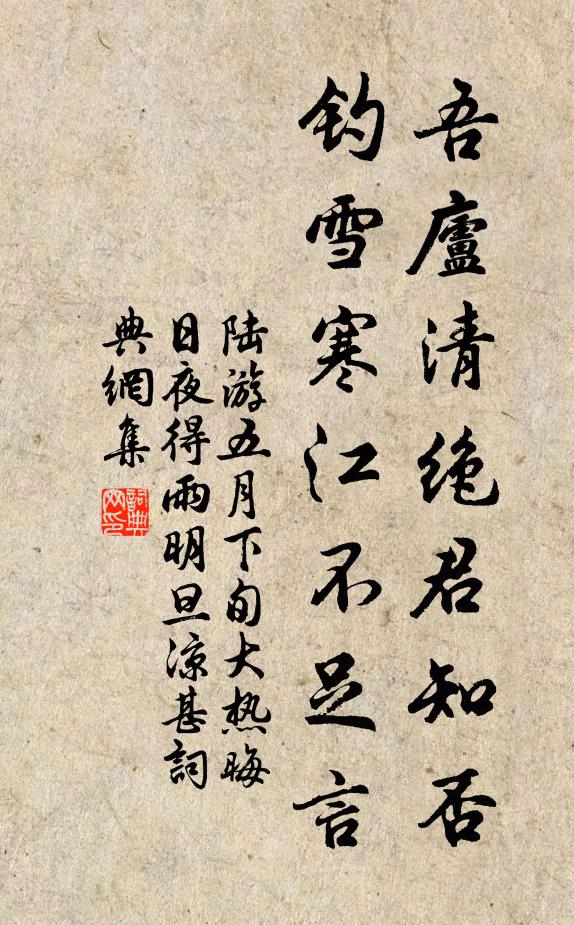 吾廬清絶君知否
钓雪寒江不足言
陆游五月下旬大热晦
日夜得雨明旦凉甚詞
典網集
詞典
网印